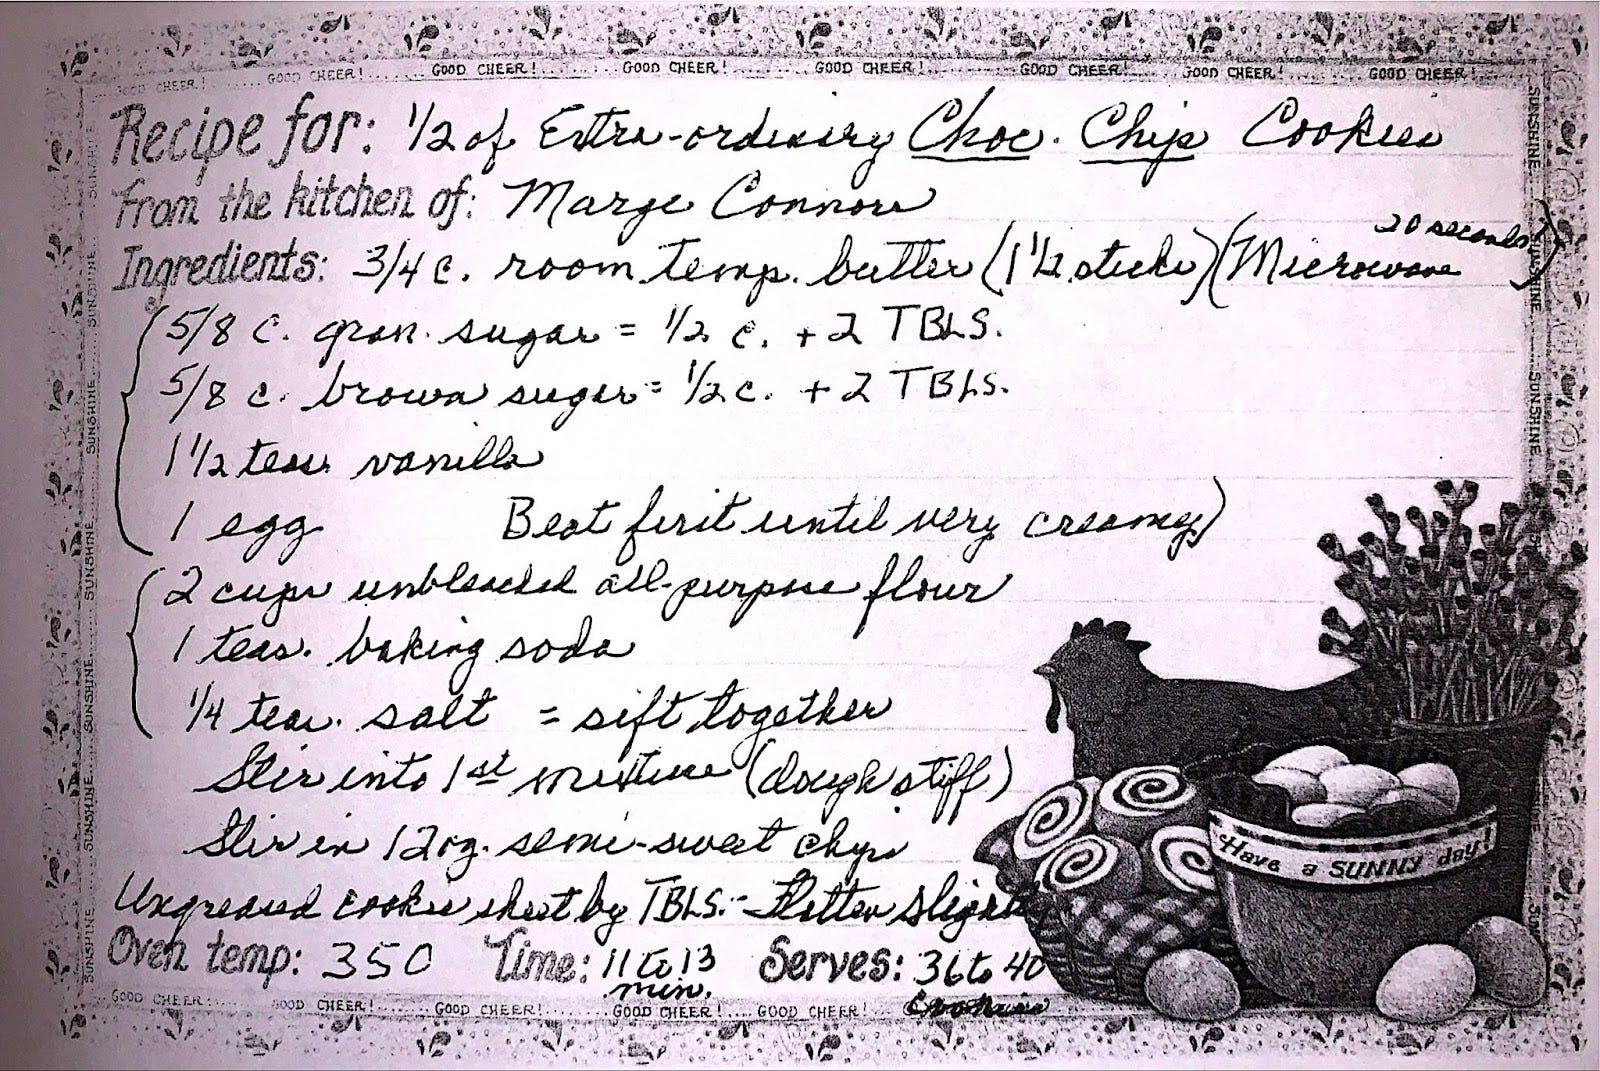 GOOD CHEER!...... GOOD CHEER!...... GOOD CHEER!...... GOOD CHEER!...... GOOD CHEER!...... GOOD CHEER!...... GOOD CHEER!...... GOOD CHEER!
Recipe for: 1/2 of Extra-ordinary Choc. Chip Cookies
From the kitchen of: Marge Connor
20 seconds
Ingredients: 3/4 c. room temp. butter (1 1/2 sticks) (Microwave)
5/8 c. gran. sugar = 1/2 c. + 2 TBLS.
5/8 c. brown sugar = 1/2 c. + 2 TBLS.
1 1/2 teas. vanilla
1 egg Beat first until very creamy)
2 cups unbleached all-purpose flour
1 teas. baking soda
1/4 teas. salt = sift together
Stir into 1st mixture (dough stiff)
Stir in 12 oz. semi-sweet chips
Have a SUNNY day!
Ungreased cookie sheet by TBLS. - Flatten slightly
Oven temp: 350 Time: 11 to 13 min. Serves: 36 to 40 cookies
GOOD CHEER!...... GOOD CHEER!...... GOOD CHEER!...... GOOD CHEER!.... GOOD CHEER!
SUNSHINE...... SUNSHINE...... SUNSHINE...... SUNSHINE...... SUNSHINE...... SUNSHINE...... SUNSHINE
SUNSHINE SUNSHINE SUNSHINE